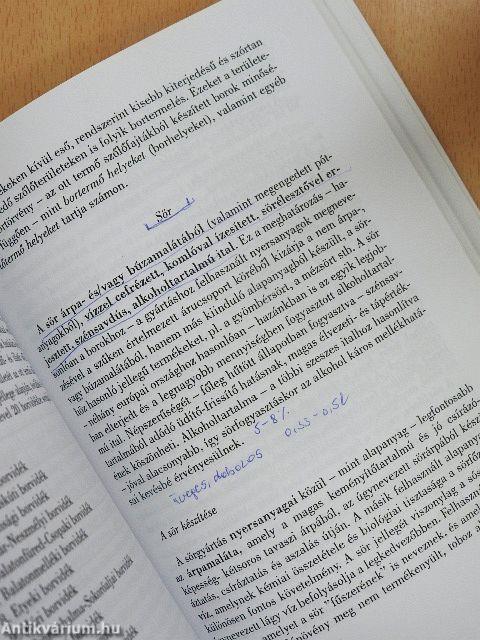 ekeken kívül eső, rendszerint kisebb kiterjedésű és szórtan
edő szőlőterületeken is folyik bortermelés. Ezeket a területe-
örvény – az ott termő szőlőfajtákból készített borok minősé-
függően – mint bortermő helyeket (borhelyeket), valamint egyéb
lőtermő helyeket tartja számon.
Sör
A sör árpa- és/vagy búzamalátából (valamint megengedett pót-
anyagokból), vízzel cefrézett, komlóval ízesített, sörélesztővel er-
jesztett, szénsavdús, alkoholtartalmú ital. Ez a meghatározás – ha-
sonlóan a borokhoz – a gyártáshoz felhasznált nyersanyagok megneve-
zésével a szűken értelmezett árucsoport köréből kizárja a nem árpa-
vagy búzamalátából, hanem más kiinduló alapanyagból készült, a sör-
höz hasonló jellegű termékeket, pl. a gyömbérsört, a mézsört stb. A sör
– néhány európai országhoz hasonlóan – hazánkban is az egyik legjob-
ban elterjedt és a legnagyobb mennyiségben fogyasztott alkoholtartal-
mú ital. Népszerűségét – főleg hűtött állapotban fogyasztva – szénsav-
tartalmából adódó üdítő-frissítő hatásnak, magas élvezeti- és tápérték-
ének köszönheti. Alkoholtartalma – a többi szeszes italhoz hasonlítva
– jóval alacsonyabb, így sörfogyasztáskor az alkohol káros mellékhatá-
sai kevésbé érvényesülnek.
5-8%
üveges, dobozos 0,33-0,5l
A sör készítése
A sörgyártás nyersanyagai közül – mint alapanyag – legfontosabb
az árpamaláta, amely a magas keményítőtartalmú és jó csírázó-
képességű kétsoros tavaszi árpából, az úgynevezett sörárpából készül
áztatás, csíráztatás és aszalás útján. A másik felhasznált alapanyag
víz, amelynek kémiai összetétele és biológiai tisztasága a sörfőz
különösen fontos követelmény. A sör jellegét viszonylag a sós
nevezett lágy víz befolyásolja a legkedvezőbben. Felhasznál
amelyet a sör "fűszerének" is neveznek, és amel
növény meg nem termékenyült, toboz al
borvidék
borvidék
borvidék
-Neszmélyi borvidék
Balatonfüred-Csopaki borvidék
Balatonmelléki borvidék
Etyeki borvidék
borvidék
Antikvárium.hu